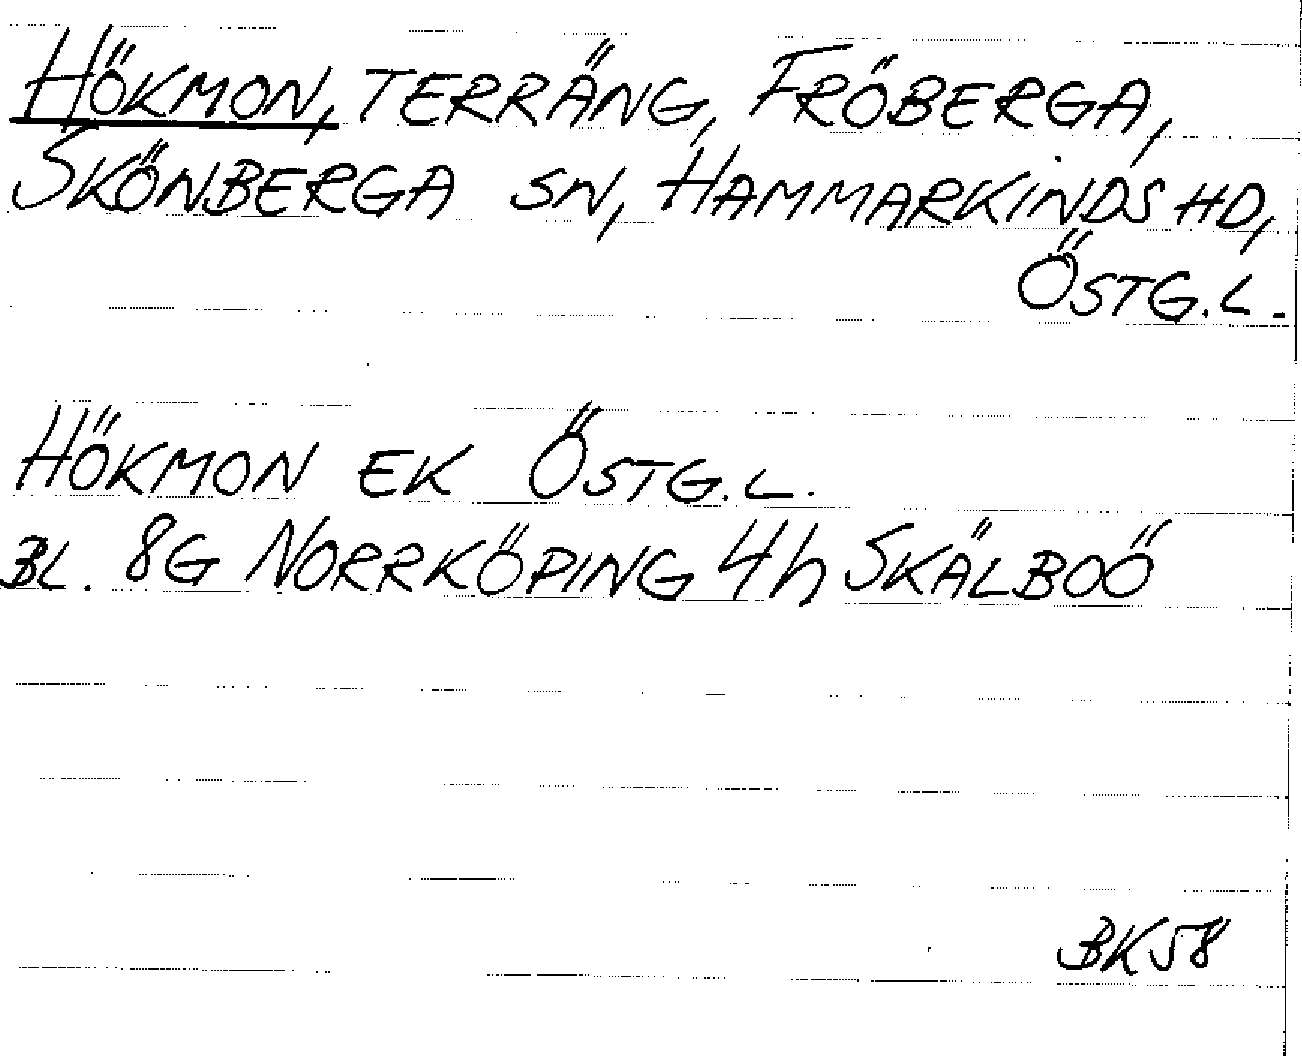 HÖKMON, TERRÄNG, FRÖBERGA,
SKÖNBERGA SN, HAMMARKINDS HD,
ÖSTG.L.
HÖKMON EK ÖSTG.L.
BL. 8G NORRKÖPING 4h SKÄLBOÖ
BK58